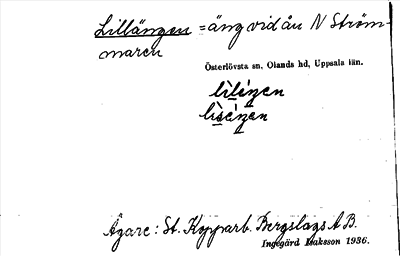 Lillängen = äng vid ån N Ström-
maren
Österlövsta sn, Olands hd, Uppsala län.
Ägare: St. Kopparb. Bergslags A.B.
Ingegärd Isaksson 1936.